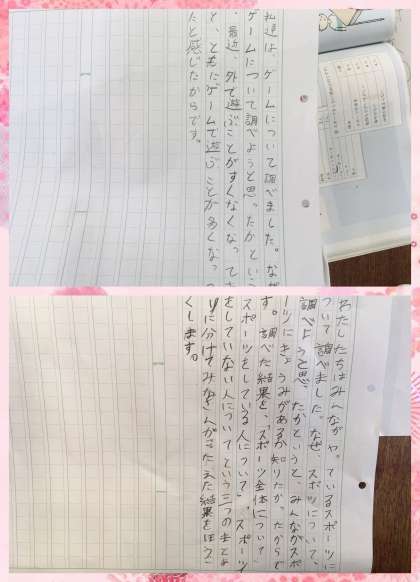 私達は、ゲームについて調べました。なぜ
ゲームについて調べようと思ったかという
、最近、外で遊ぶことがすくなくなって
と、ともにゲームで遊ぶことが多くなっ
たと感じたからです。
わたしたちはみんながやっているスポーツに
ついて調べました。なぜ、スポツについて、
調べようと思ったかというと、みんながスポ
ーツにきょうみがあるか知りたかったからで
す。調べた結果を、「スポーツ全体について」
スポーツをしている人について」、スポーツ
をしていない人についてという三つのまとま
りに分けてみなさんがこたえた結果をほうこ
くします。